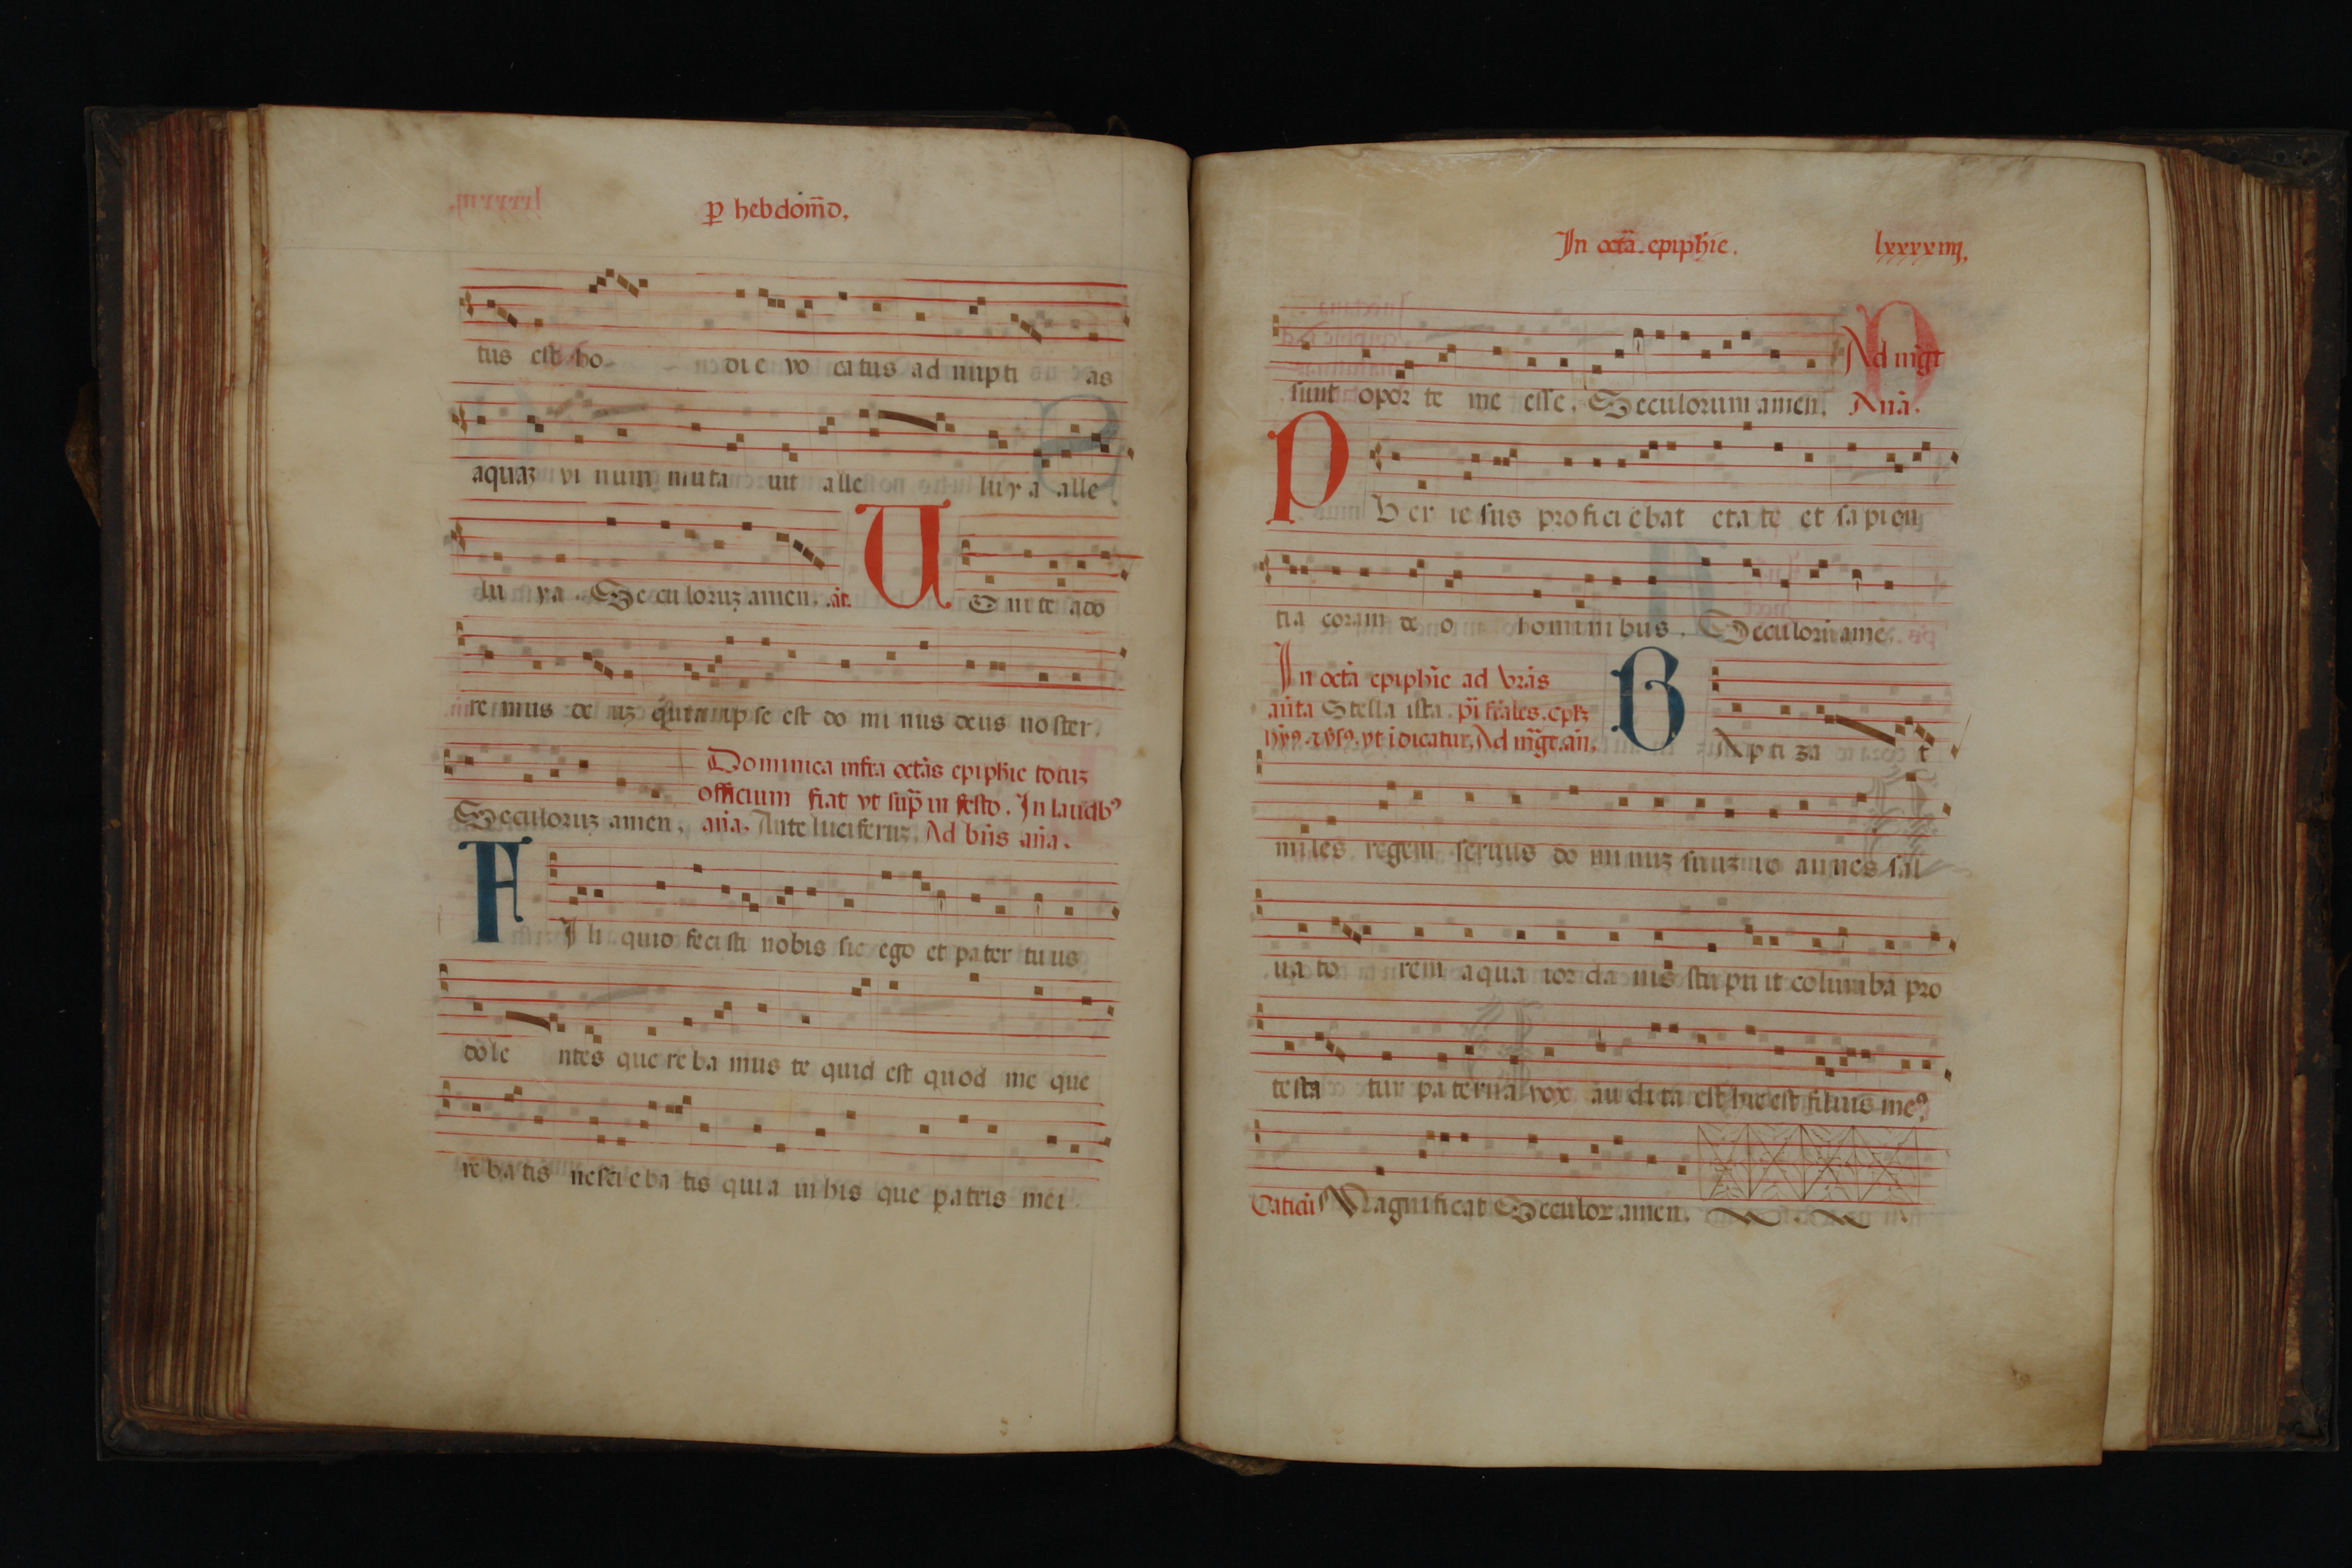 p hebdom̄d,
tus est ho die vo catus ad nupti as
aquaz vi num muta uit alle luya alle
lu ya. Seculoruz amen. añ. U Enite ado
re mus de uz quia ipse est do mi nus deus noster,
Dominica infra octãs epiphie totuz
officium fiat vt sup̃ in festo. In laudibꝰ
Seculoruz amen, aña. Ante luciferuz. Ad bñs aña.
F Ili quid fecisti nobis sic ego et pater tuus
dole ntes que re ba mus te quid est quod me que
re ba tis nesci eba tis quia in his que patris mei
In octã. epiphie. lxxxxiiij,
sunt opor te me esse. Seculorum amen. Ad mg̃t
Anã.
P Uer iesus proficiebat etate et sapien
tia coram de o hominibus. Seculorũ amẽ.
In octã epiphie ad vrãs
anta Stella ista. p̃i
Ad mg̃t. añ. B Aptiza t
miles regem seruus do minuz suuz io annes sal
ua to rem aqua ior da nis stupu it columba pro
testa tur paterna vox au di ta est hic est filius meꝰ
Cãticũ Magnificat Seculor amen.